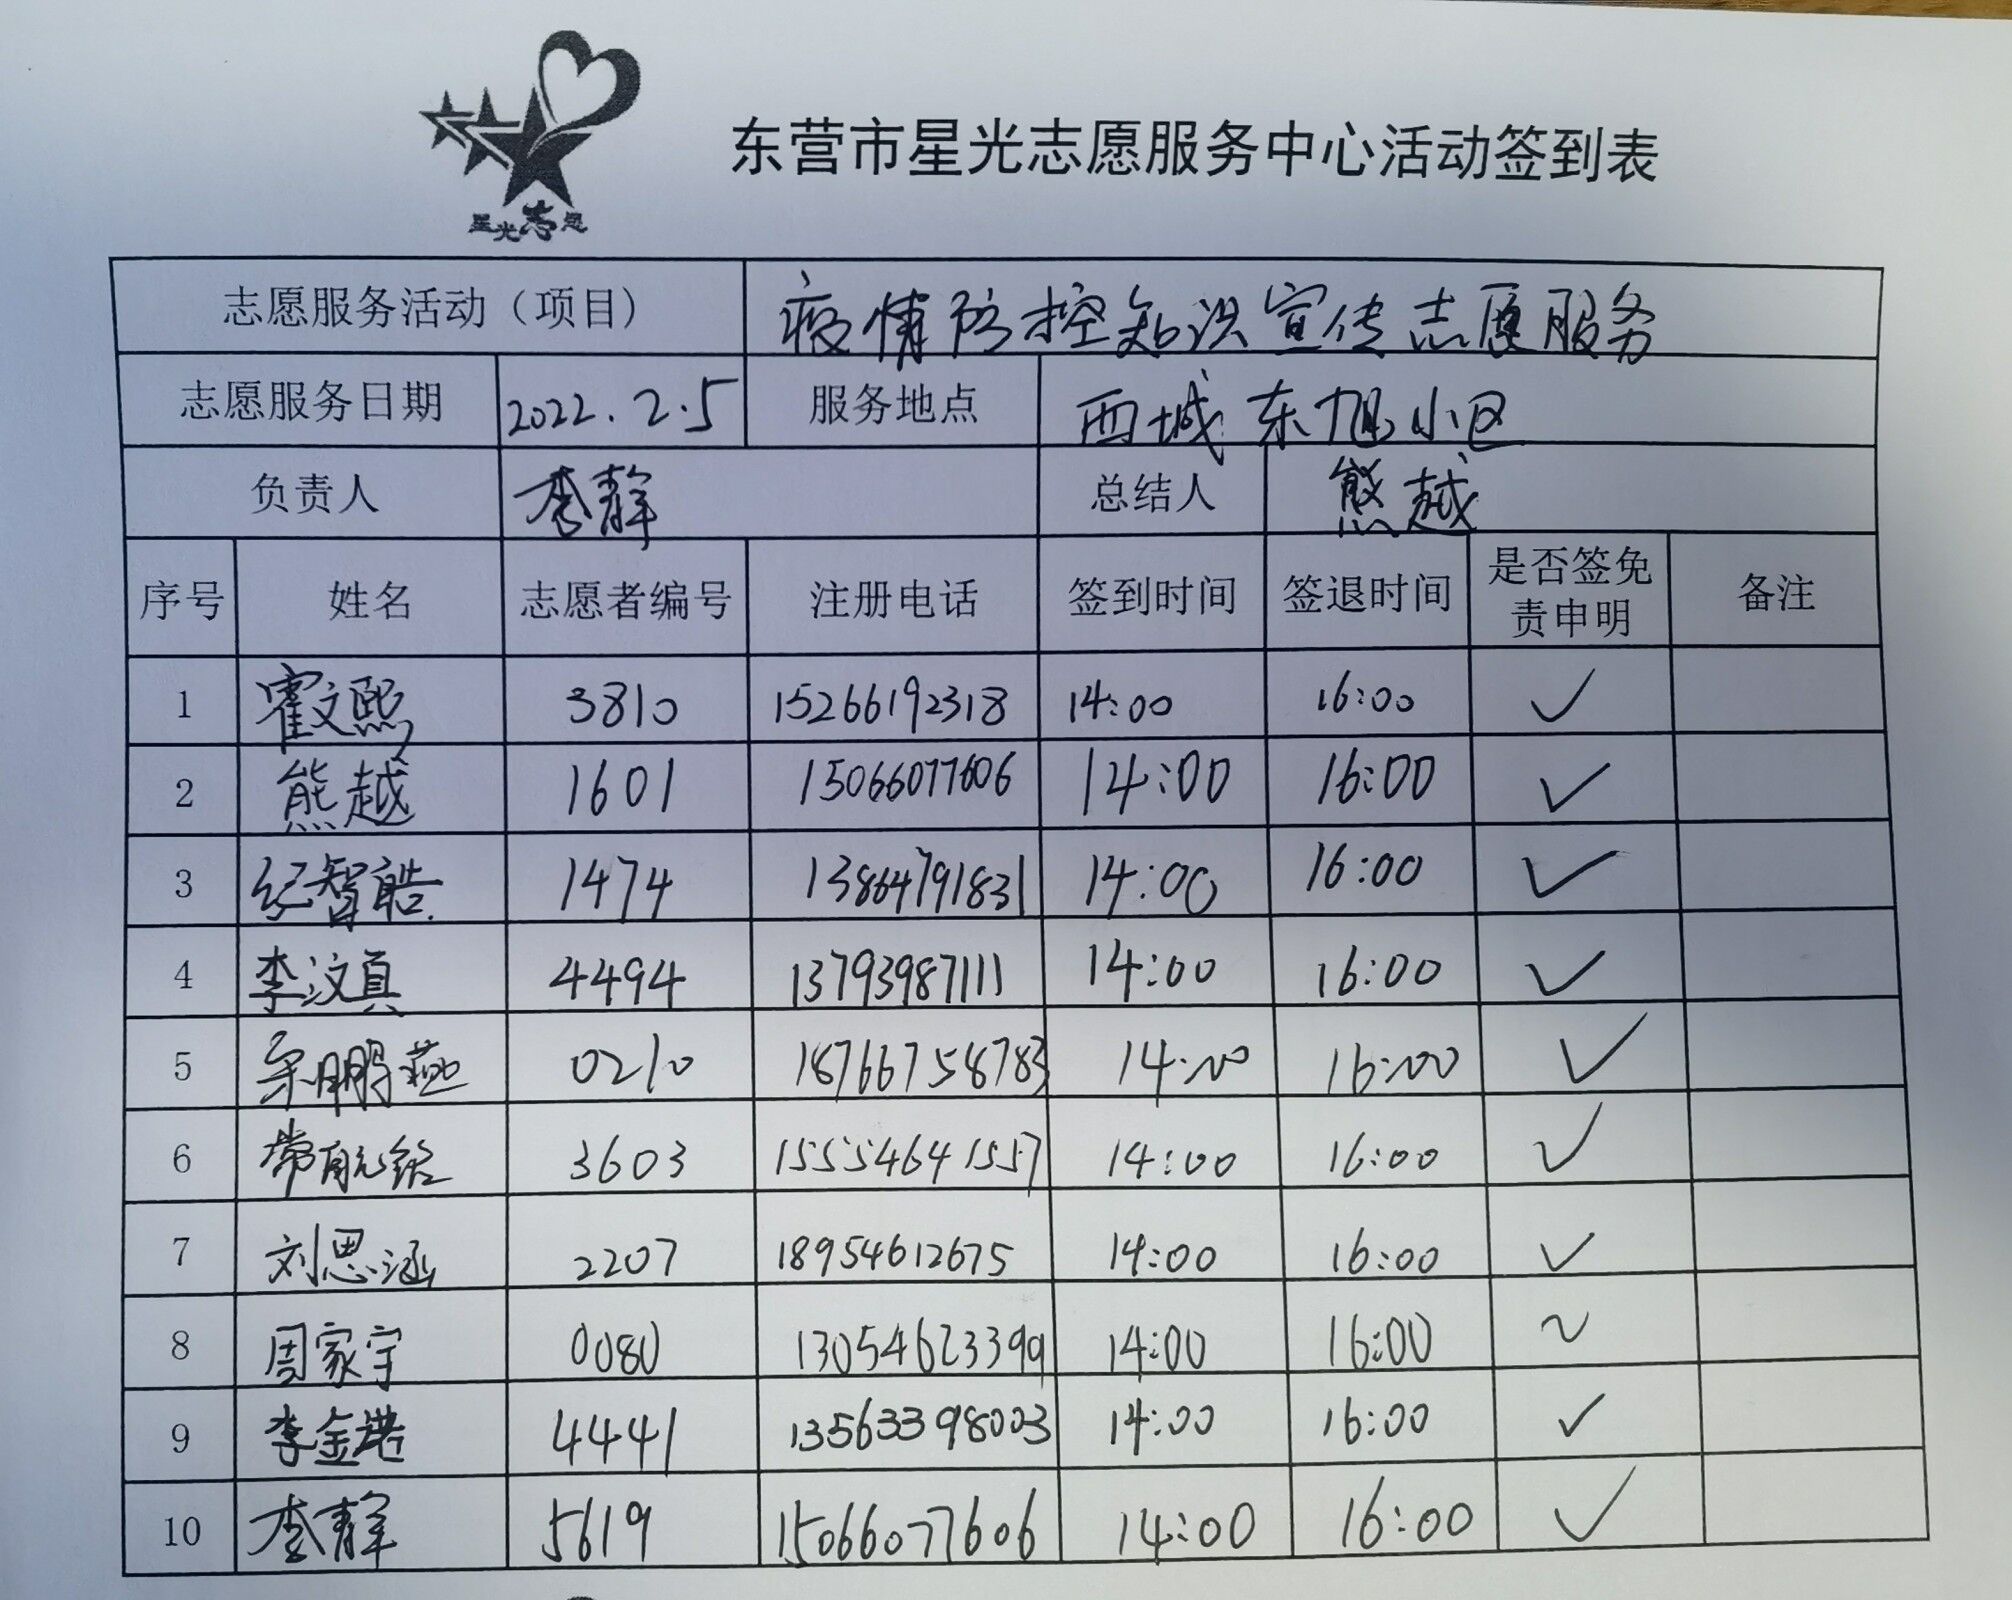 星光志愿
东营市星光志愿服务中心活动签到表
志愿服务活动（项目） 疫情防控知识宣传志愿服务
志愿服务日期 2022.2.5 服务地点 西城东旭小区
负责人 李静 总结人 熊越
序号 姓名 志愿者编号 注册电话 签到时间 签退时间 是否签免责申明 备注
1 霍文熙 3810 15266192318 14:00 16:00 ✓
2 熊越 1601 15066077606 14:00 16:00 ✓
3 纪智皓 1474 13864791831 14:00 16:00 ✓
4 李汶真 4494 13793987111 14:00 16:00 ✓
5 宋鹏燕 0210 18766758783 14:00 16:00 ✓
6 常航铭 3603 15554641557 14:00 16:00 ✓
7 刘思涵 2207 18954612675 14:00 16:00 ✓
8 周家宇 0080 13054623399 14:00 16:00 ✓
9 李金港 4441 13563398003 14:00 16:00 ✓
10 李静 5619 15066077606 14:00 16:00 ✓